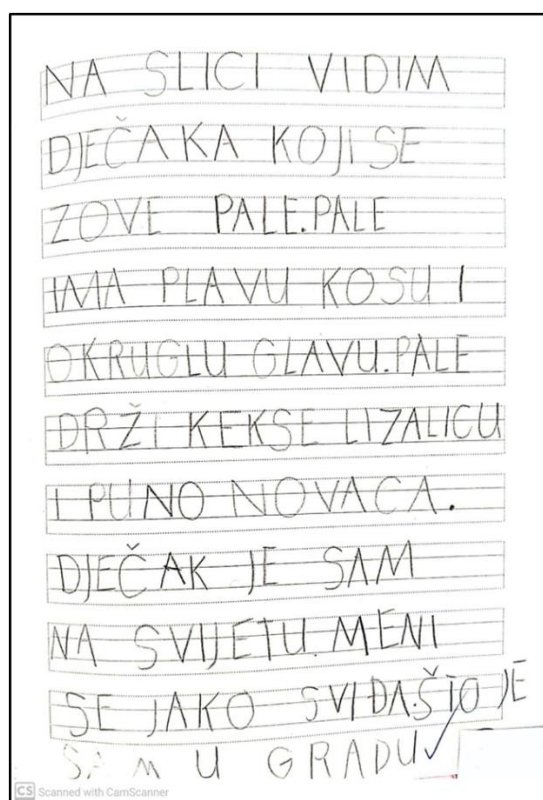 NA SLICI VIDIM
DJEČAKA KOJI SE
ZOVE PALE.PALE
IMA PLAVU KOSU I
OKRUGLU GLAVU.PALE
DRŽI KEKSE LIZALICU
I PUNO NOVACA.
DJEČAK JE SAM
NA SVIJETU. MENI
SE JAKO SVIĐA.ŠTO JE
SAM U GRADU
CS Scanned with CamScanner